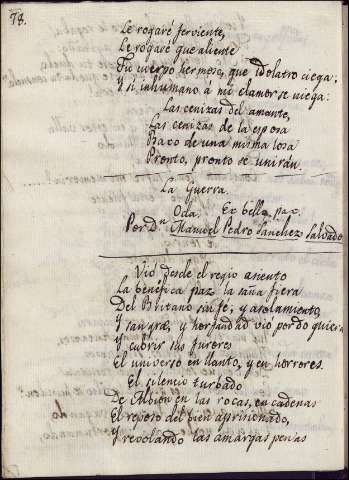 78.
Le rogaré ferviente,
Le rogaré que aliente
Tu cuerpo hermoso, que idolatro ciega;
Y si inhumano a mi clamor se niega:
Las cenizas del amante,
Las cenizas de la esposa
Baxo de una misma losa
Pronto, pronto se unirán.
La Guerra.
Oda. Ex bello, pax.
Por Dn. Manuel Pedro Sanchez Salvador
Vió desde el regio asiento
La benéfica paz la saña fiera
Del Britano sin fe, y asolamiento,
Y sangre, y horfandad vió por do quiera
Y cubrir sus furores
El universo en llanto, y en horrores.
El silencio turbado
De Albion en las rocas, en cadenas
El reposo del bien aprisionado,
Y revolando las amargas penas